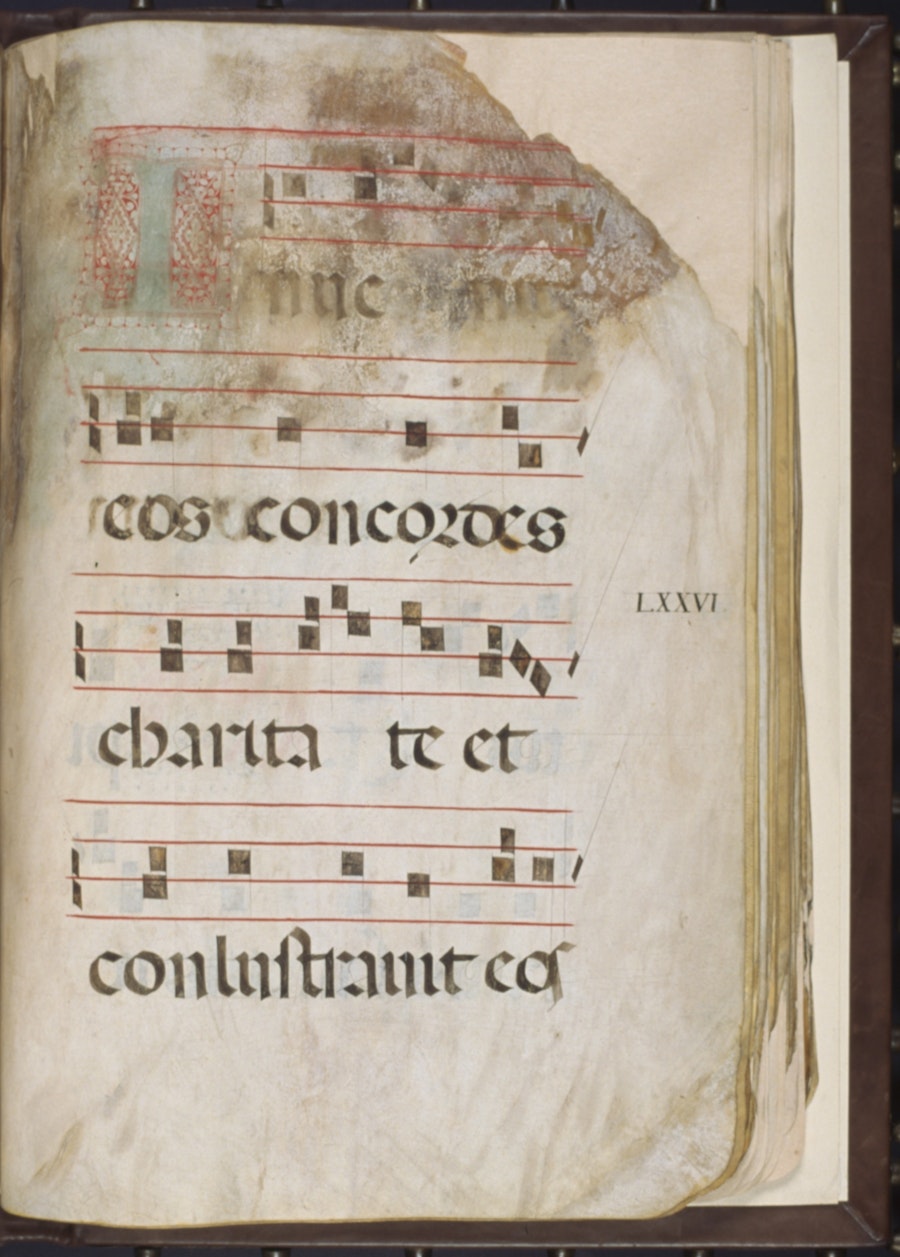 Inue
eos concordes
charita te et
LXXVI
conluſtrauit eos